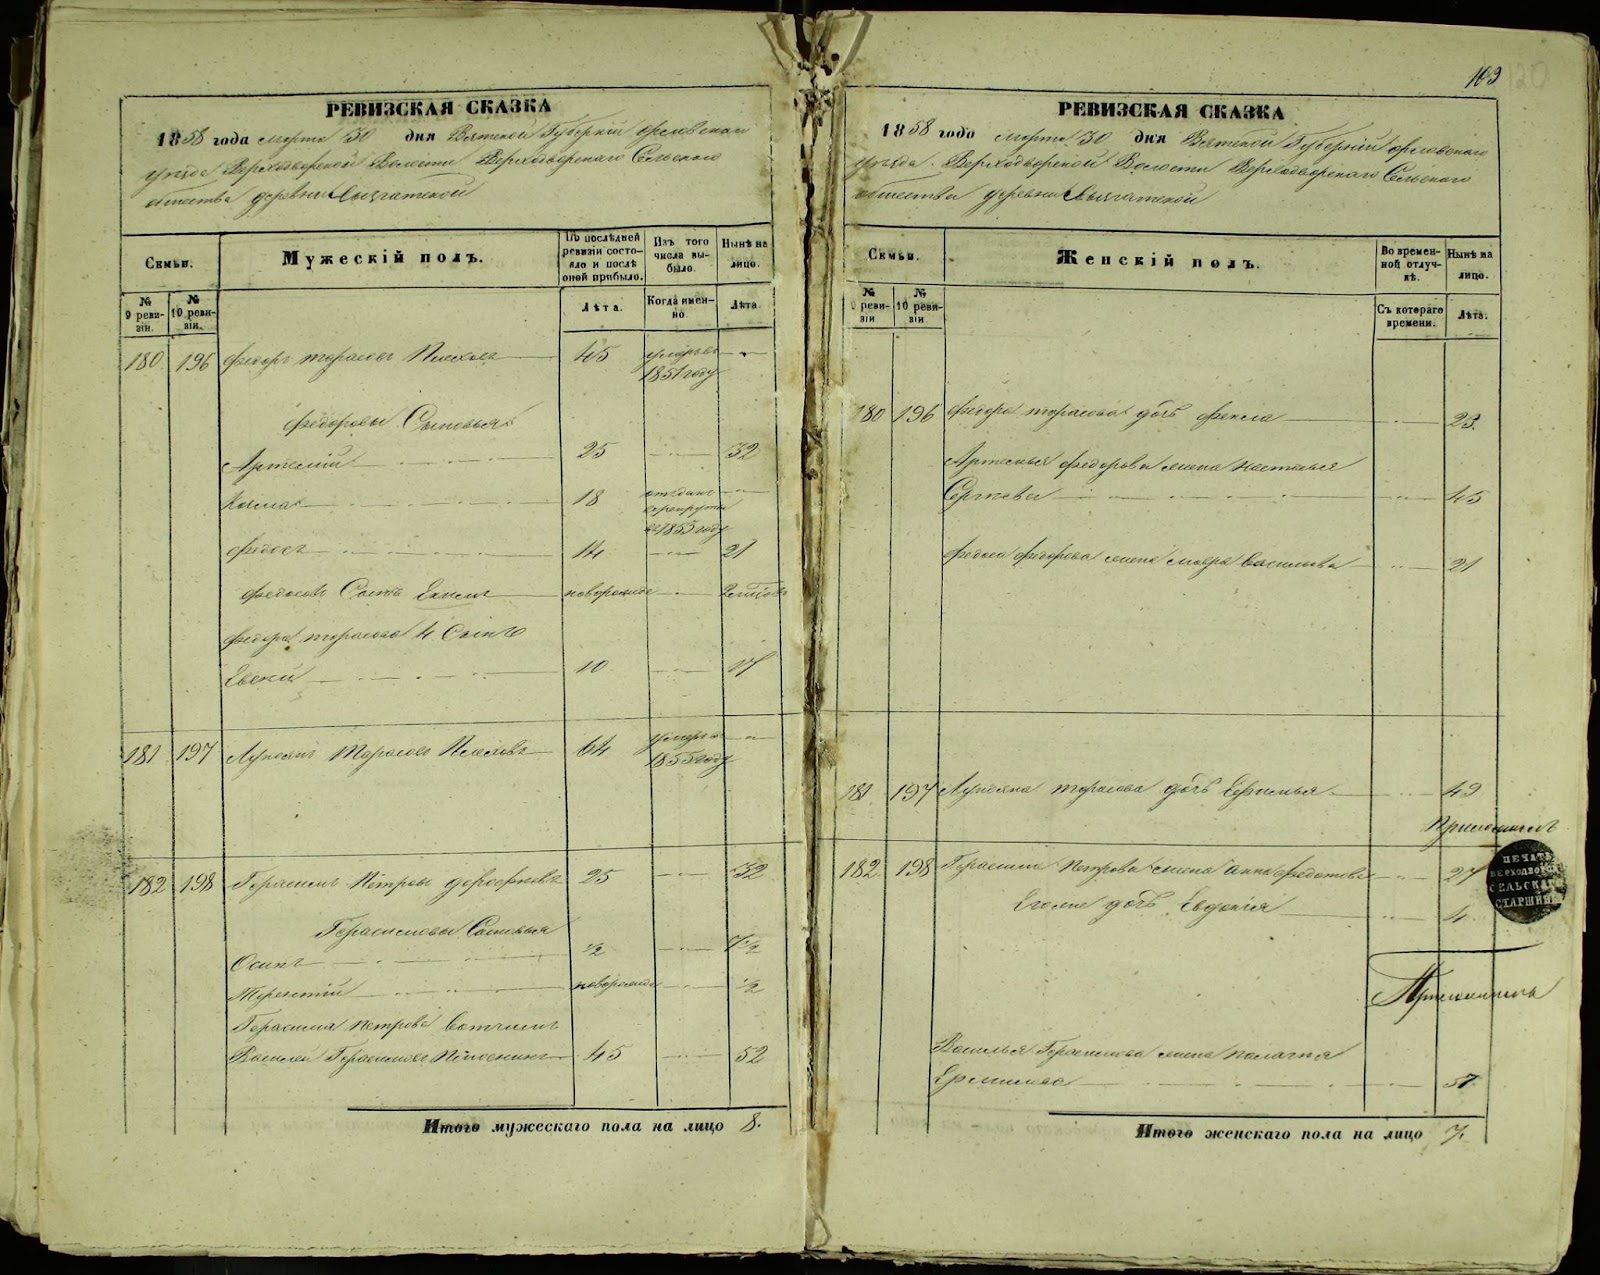 РЕВИЗСКАЯ СКАЗКА
1858 года марта 30 дня Вятской Губернiи орловскаго
уѣзда Верходворской Волости Верходворскаго Сельскаго
общества деревни
Семьи.
Мужескiй полъ.
Въ послѣдней ревизiи состояло и послѣ оной прибыло.
Изъ того числа выбыло.
Нынѣ на лицо.
№ 9 ревизiи.
№ 10 ревизiи.
Лѣта.
Когда именно.
Лѣта.
180 196 Федоръ тарасовъ 45 умеръ въ 1851 году
Федоровы Сыновья
Артемiй 25 32
Козма 18 отданъ в рекруты въ 1853 году
Федосъ 14 21
Федосовъ Сынъ новорожд
Федора тарасова 4 Сынъ
Евсей 10 17
181 197 Лупонъ Тарасовъ 64 умеръ 1855 году
182 198 Герасимъ Петровъ дорофеевъ 25 32
Герасимовы Сыновья
Осипъ ½ 7½
Терентiй новорожд ½
Герасима петрова вотчимъ
Василей Герасимовъ 45 52
Итого мужескаго пола на лицо 8.
103
120
РЕВИЗСКАЯ СКАЗКА
1858 года марта 30 дня Вятской Губернiи орловскаго
уѣзда Верходворской Волости Верходворскаго Сельскаго
общества деревни
Семьи.
Женскiй полъ.
Во временной отлучкѣ.
Нынѣ на лицо.
№ 9 ревизiи
№ 10 ревизiи
Съ котораго времени.
Лѣта.
180 196 Федора тарасова дочь Фекла 23.
Артемья федорова жена настасья
Сергѣева 45
Федоса федорова жена мавра Васильева 21
181 197 Лупона тарасова дочь Ефимья 49
182 198 Герасима Петрова жена анна федотова 27
Егожа дочь Евдокiя 4
ПЕЧАТЬ
ВЕРХОДВОРСК
СЕЛЬСКАГ
СТАРШИН
Василья Герасимова жена палагея
Ермилова 57
Итого женскаго пола на лицо 7.